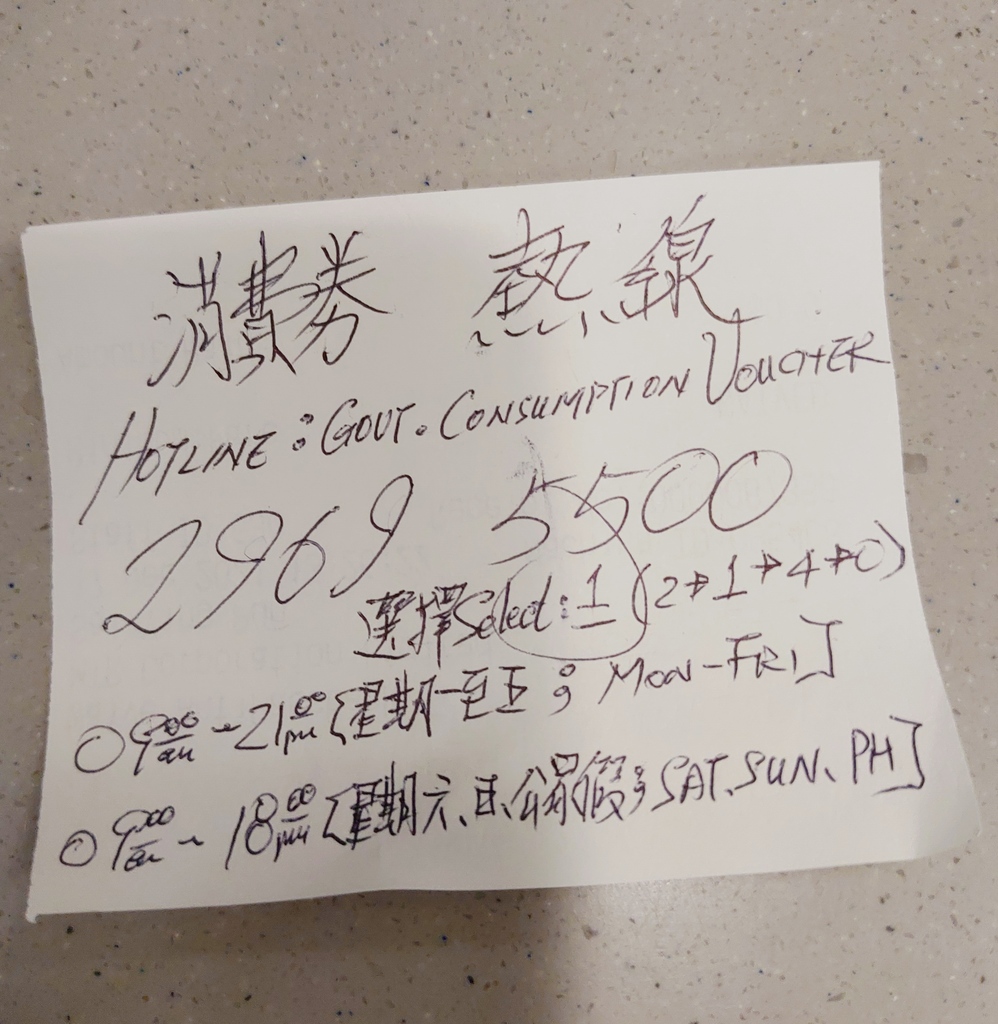 消費券 熱線
HOTLINE : GOVT. CONSUMPTION VOUCHER
2969 5500
選擇 Select : 1 (2→1→4→0)
○ 9:00 am ~ 21:00 pm [星期一至五 ; MON-FRI]
○ 9:00 am ~ 18:00 pm [星期六、日、公眾假 ; SAT、SUN、PH]